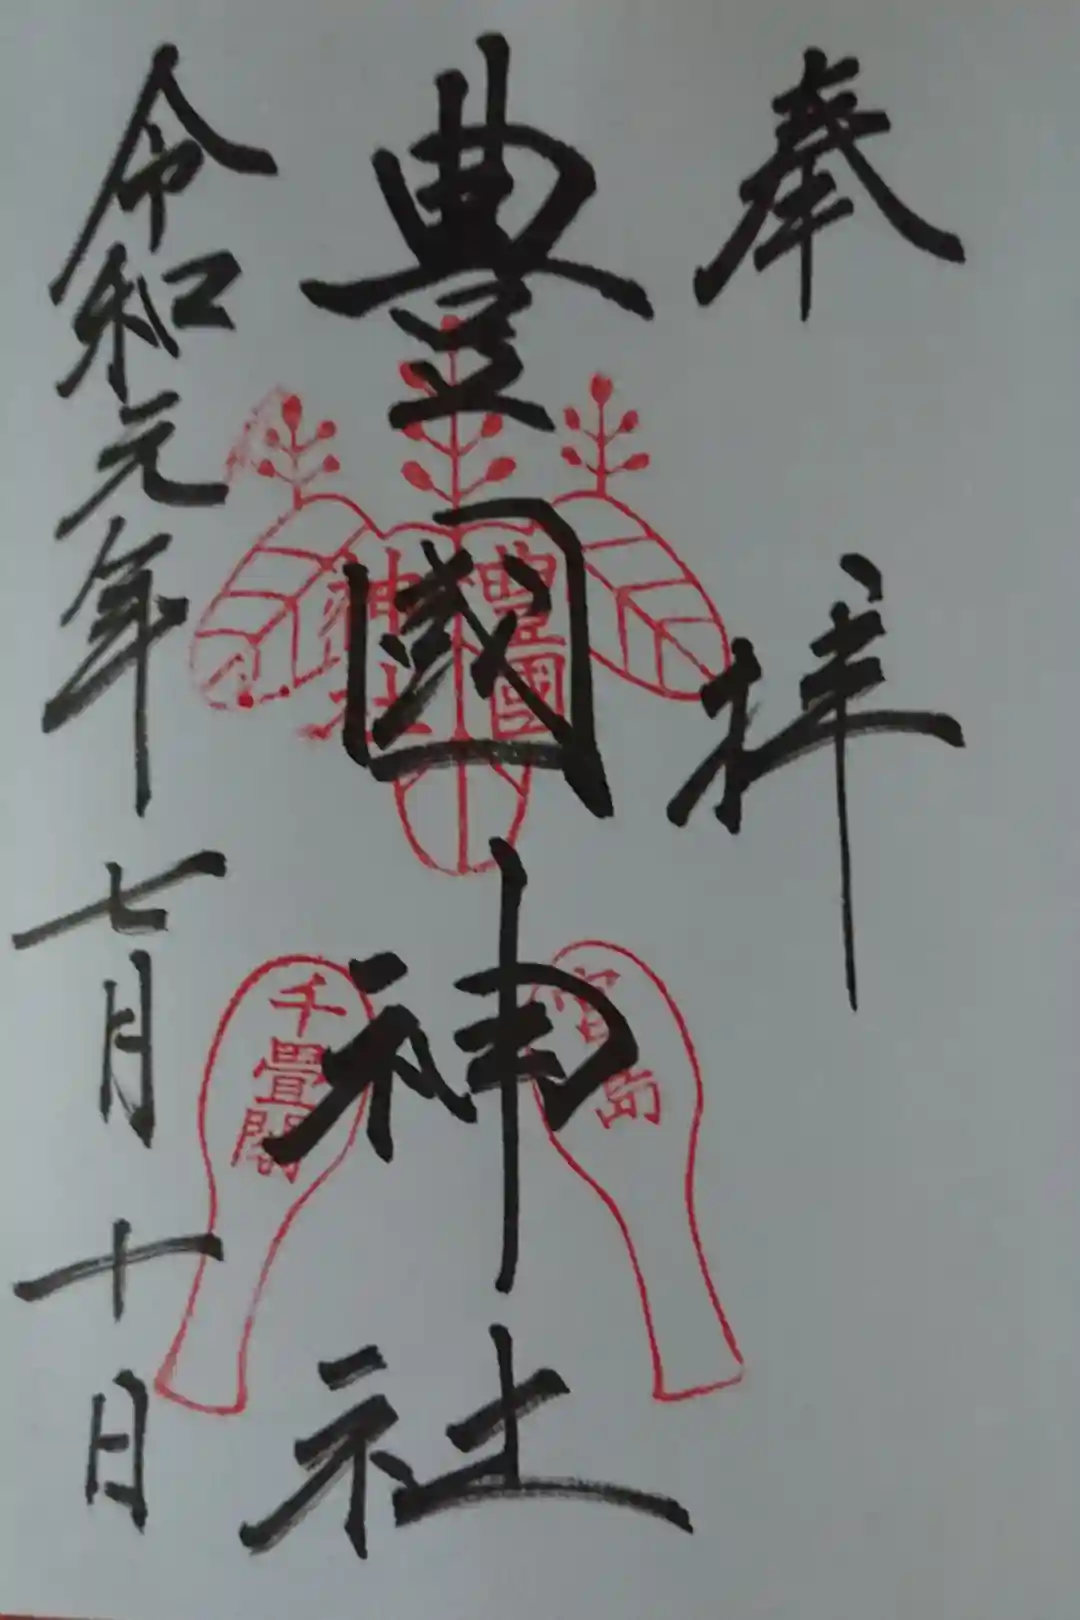 奉拝
豊國神社
令和元年七月十日
豊國
神社
宮島
千畳閣